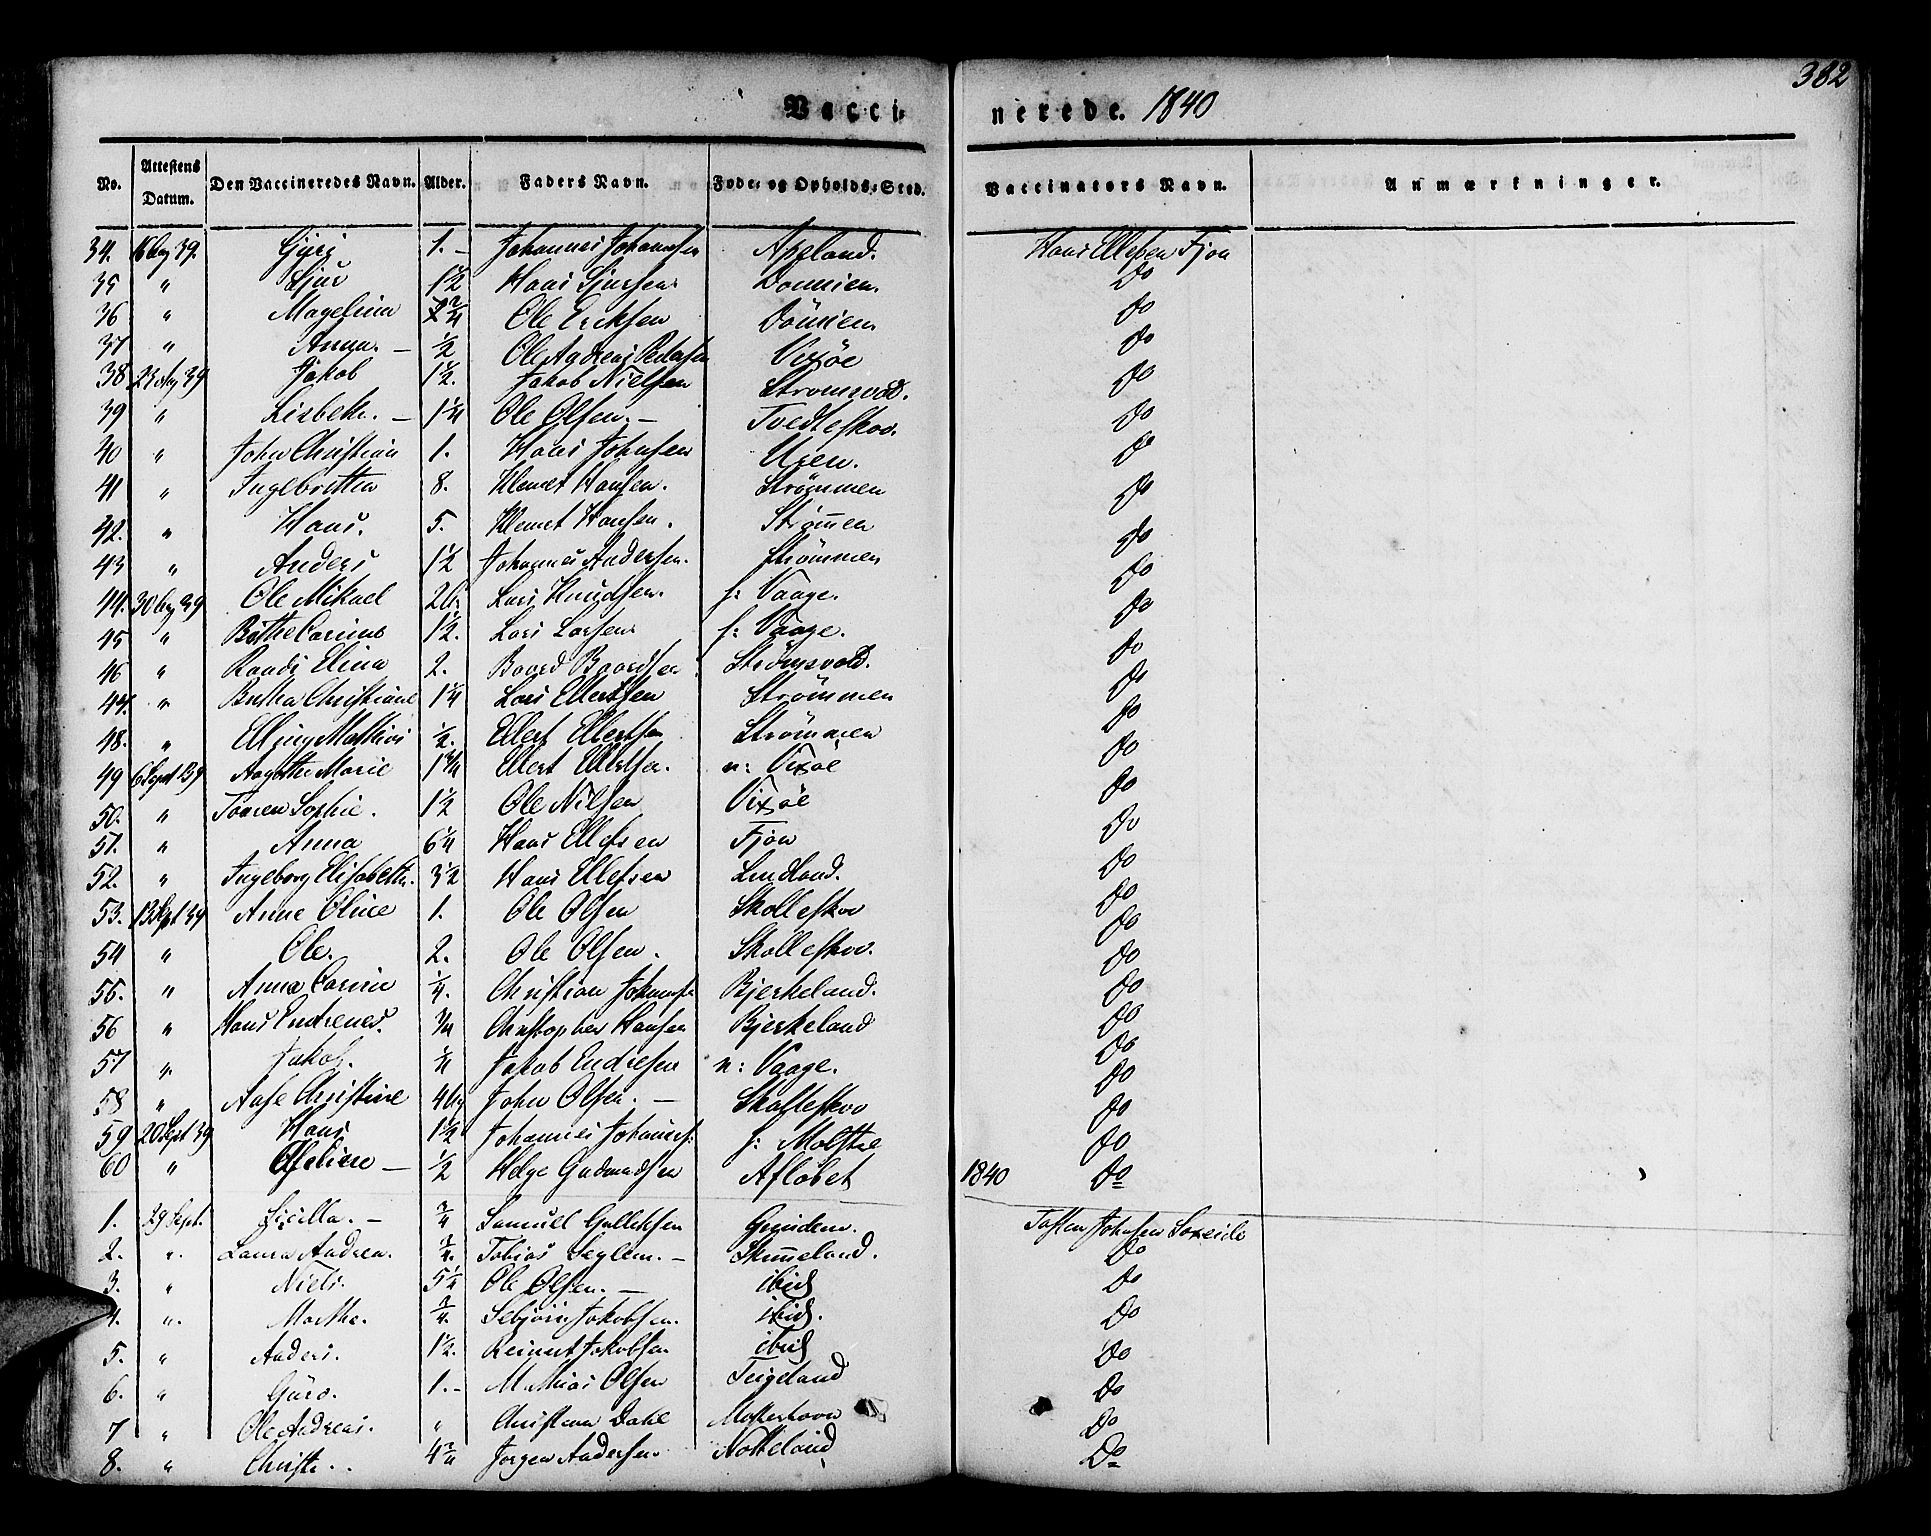 382
Vacci- nerede. 1840
No. Attestens Datum. Den Vaccineredes Navn. Alder. Faders Navn. Føde- og Opholds-Sted. Vaccinators Navn. Anmærkninger.
34. 16 Aug 39. 1. - Johannes Johannesen Apeland. Hans Ellefsen Fjon
35 " Sjur 1½ Hans Sjursen Donnien. Do
36 " Magelina Ole Ericksen Dönnien Do
37 " Anna. - ½ Ole Andreas Pedersen Vixöe Do
38 23 Aug 39 Jakob 1½. Jakob Nielsen Stromsvold. Do
39 " Lisbeth. - 1¼ Ole Olsen. - Tvedteskov. Do
40 " John Christian 1. Hans Johnsen Uren. Do
41 " Ingebretha 8. Klemet Hansen. Strömmen Do
42. " Hans. 5. Klemet Hansen. Strömen Do
43 " Anders 1½ Johannes Andersen. Strömmen Do
44. 30 Aug 39 Ole Mikael Lars Knudsen. f: Vaage. Do
45 " Berthe Corine 1½. Lars Larsen f: Vaage. Do
46 " Randi Elina 2. Baard Baardsen Strömsvold. Do
47. " Brytha Christiane 1¼ Lars Ellertsen Strömmen Do
48. " Elling Mathias ½. Ellert Ellertsen Strömmen Do
49 6 Sept 39 Aagothe Marie 1¾ Ellert Ellertsen. n: Vixöe Do
50. " Taaren Sophie. 1½ Ole Nilsen Vixöe Do
51. " Anna 6¼ Hans Ellefsen Fjon Do
52. " Ingeborg Elisabeth. 3½ Hans Ellefsen Lindland. Do
53. 13 Sept 39 Anne Oline 1. Ole Olsen Skolleskov Do
54 " Ole. 2. Ole Olsen. Skolleskov. Do
55. " Anna Carine ¼. Christian Johannesen Bjerkeland. Do
56 " Hans Endrenes. ¾ Christopher Hansen Bjerkeland Do
57 " Jakob. ¼ Jakob Endresen n: Vaage. Do
58 " Aase Christine John Olsen. - Skolleskov Do
59 20 Sept 39 Hans 1½ Johannes Johannes: f: Molstre Do
60 " - ½ Helge Gudmundsen Aflöbet 1840 Do
1. 29 Sept. Sicilla. - ¾ Samuel Gulleksen Grinden. Tosten Johnsen Soreide
2. " Laura Andrea. ¾. Tobias Seglem. - Skimeland. Do
3. " Niels. 5¼ Ole Olsen. - ibid Do
4. " Marthe. ¾. Sebjörn Jakobsen. ibid. Do
5. " Anders. 1½. Reinert Jakobsen ibid Do
6. " Guro. 1. - Mathias Olsen Teigeland Do
7 " Ole Andreas. " Christian Dahl Do
8. " Christi. . 4¾ Jorgen Andersen. Notteland Do